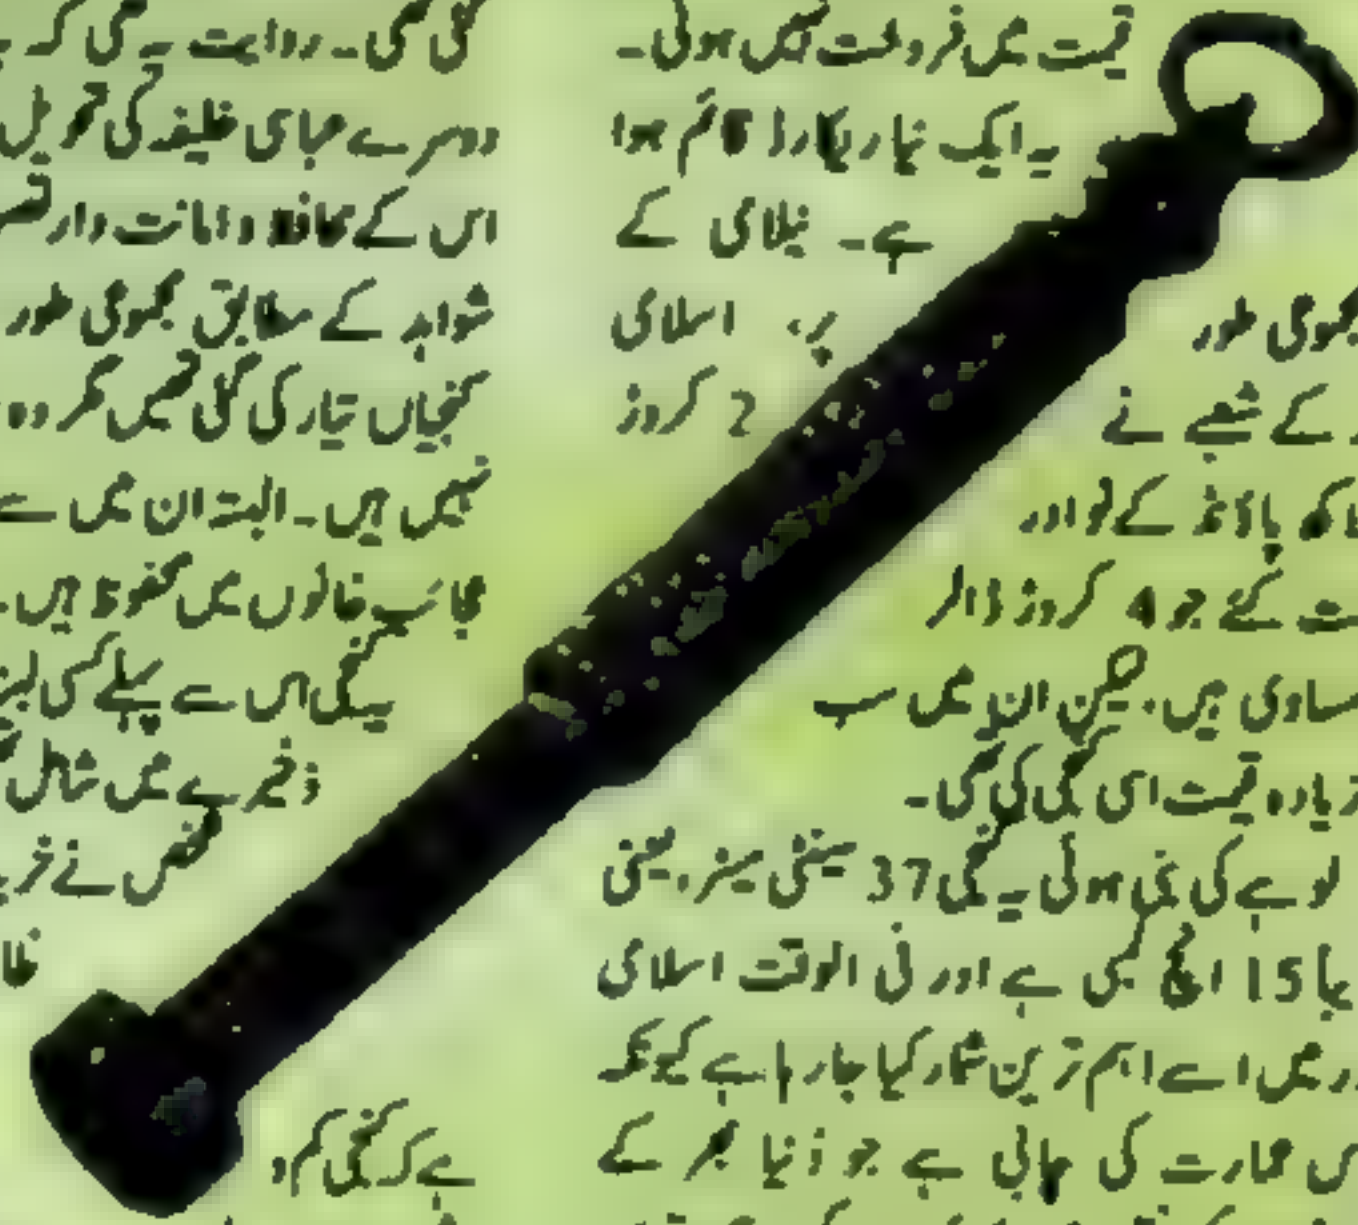 قیمت میں فروخت نہیں ہوئی۔
یہ ایک نیا ریکارڈ قائم ہوا
ہے۔ نیلامی کے
پر، اسلامی
2 کروڑ
مجموعی طور
کے شعبے نے
لاکھ پاؤنڈ کے نوادر
کئے جو 4 کروڑ ڈالر
مساوی ہیں۔ لیکن ان میں سب
زیادہ قیمت اسی کنجی کی لگی۔
لوہے کی بنی ہوئی یہ کنجی 37 سینٹی میٹر، یعنی
یا 15 انچ لمبی ہے اور فی الوقت اسلامی
میں اسے اہم ترین شمار کیا جا رہا ہے کیونکہ
عمارت کی چابی ہے جو دُنیا بھر کے
گئی تھی۔ روایت یہ تھی کہ
دوسرے عباسی خلیفہ کی تحویل
اس کے محافظ و امانت دار
شواہد کے مطابق مجموعی طور
کنجیاں تیار کی گئی تھیں مگر وہ
نہیں ہیں۔ البتہ ان میں سے
عجائب خانوں میں محفوظ ہیں۔
یہ کنجی اس سے پہلے کسی
ذخیرے میں شامل
شخص نے
ہے کہ کنجی